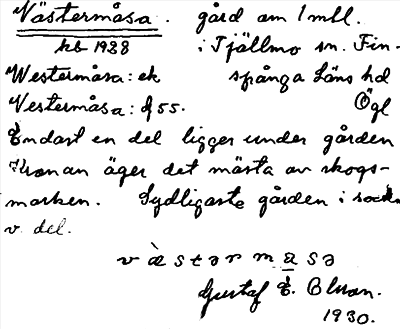 Västermåsa. gård om 1 mtl.
hb 1928 i Tjällmo sn. Fin-
Westermåsa: ek spånga läns hd
Vestermåsa: J 55. Ögl
Endast en del ligger under gården
Kronan äger det mästa av skogs-
marken. Sydligaste gården i sock
v. del.
västərmasə
Gustaf E. Olsson.
1930.